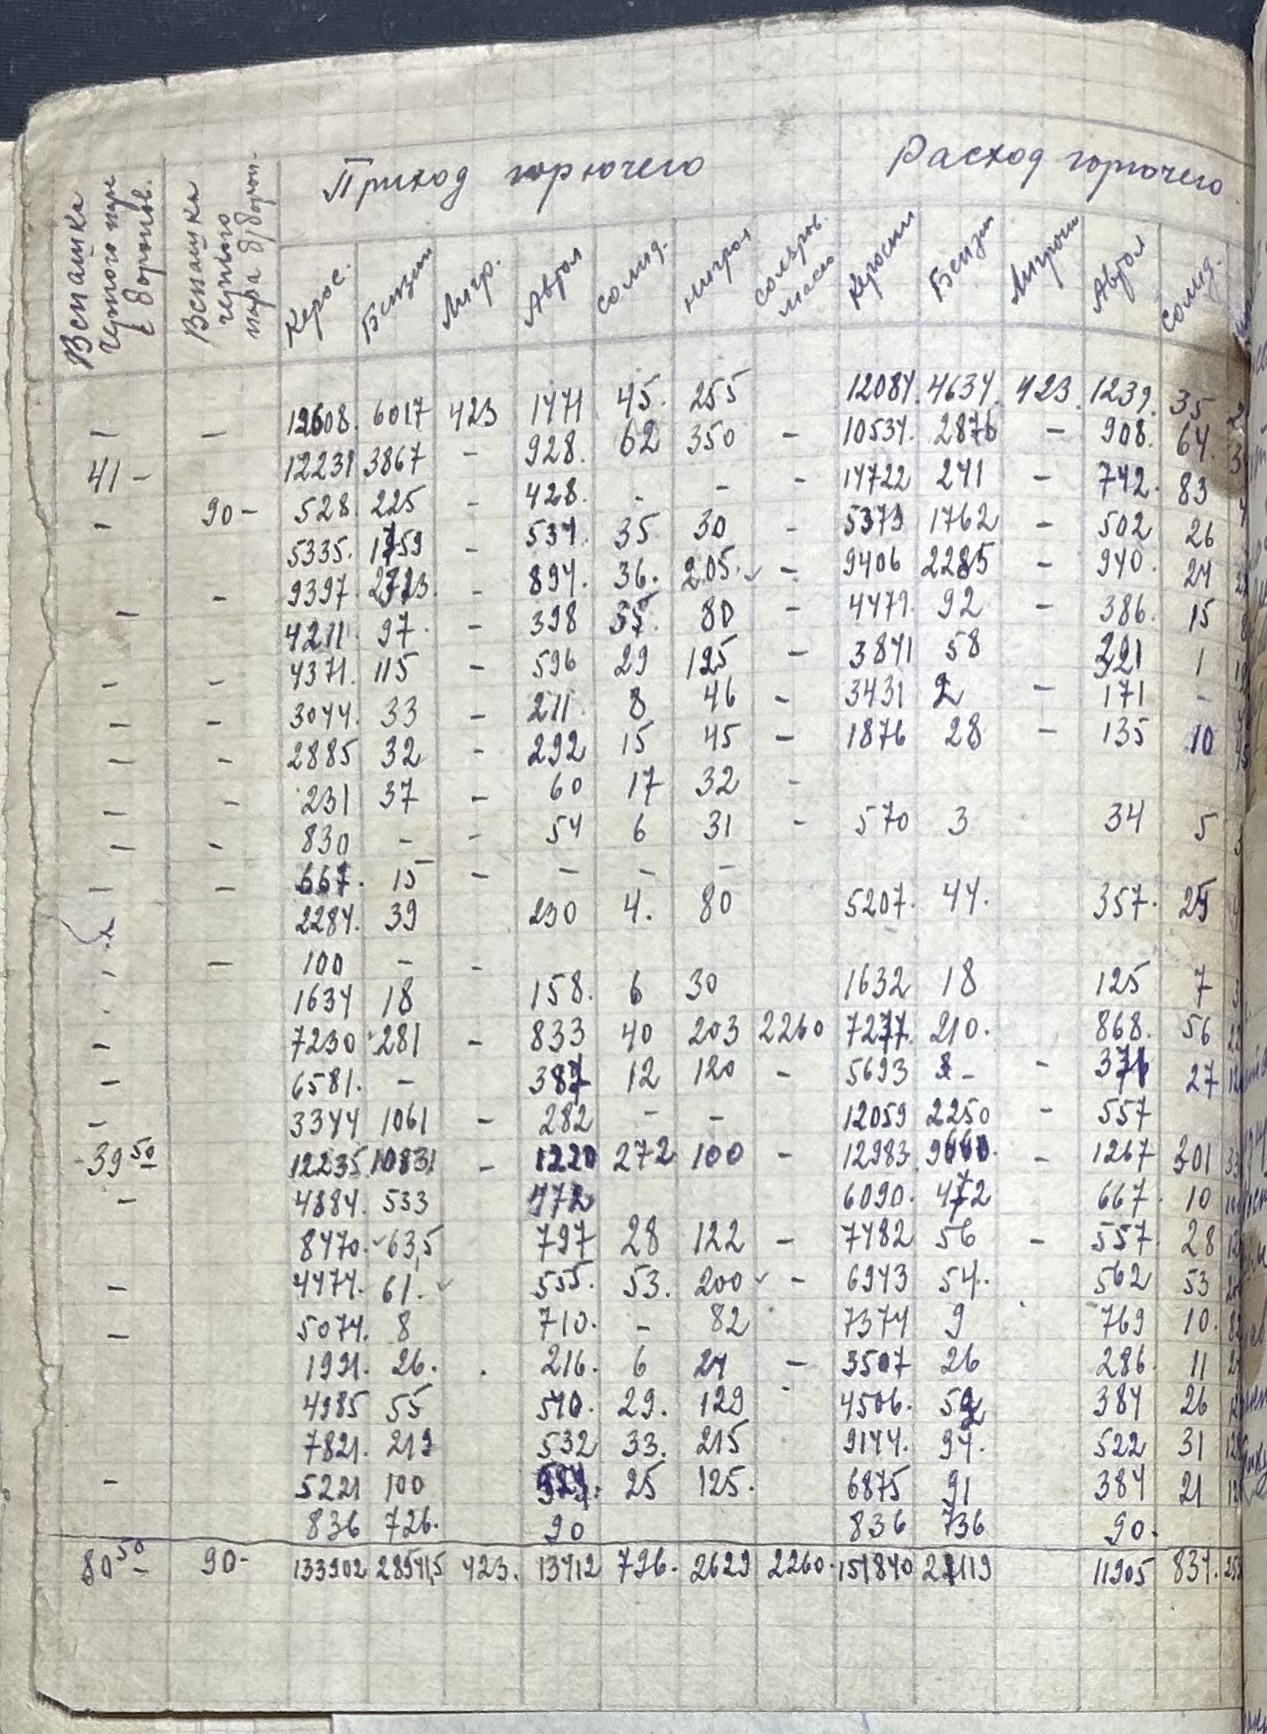 Приход горючего Расход горючего
Вспашка черного пара с боронов. Вспашка черного пара б/борон. Керос. Бензин Лигр. Автол солид. нигрол соляров. масло Керосин Бензин Лигроин Автол солид.
— — 12608. 6017 423 1471 45. 255 12084. 4634. 423. 1239. 35
41 — 12231 3867 - 928. 62 350 - 10534. 2876 - 908. 64.
- 90 - 528. 225 - 428. - - - 14722 241 - 742. 83
5335. 1759 - 534. 35 30 - 5379 1762 - 502 26
- - 9397. 2723. - 894. 36. 205. - 9406 2285 - 940. 24
4211. 97. - 398 35. 80 - 4479. 92 - 386. 15
- - 4371. 115 - 596 29 125 - 3841 58 321 1
- - 3044. 33 - 211. 8 46 - 3431 2 - 171 -
- - 2885 32 - 292 15 45 - 1876 28 - 135 10
- - 231 37 - 60 17 32 -
- - 830 - - 54 6 31 - 570 3 34 5
- - 667. 15 - - - -
2284. 39 230 4. 80 5207. 44. 357. 25
- - 100 - -
1634 18 158. 6 30 1632 18 125 7
- 7230 281 - 833 40 203 2260 7277. 210. 868. 56
- 6581. - 387 12 120 - 5693 - - 376 27
- 3344 1061 - 282 - - 12059 2250 - 557
- 39 50 12235 10831 - 1220 272 100 - 12983. - 1267 301
- 4884. 533 472 6090. 472 667. 10
8470. 63,5 797 28 122 - 7482 56 - 557. 28
- 4474. 61. 555. 53. 200 - 6943 54. 562 53
- 5074. 8 710. - 82 7374 9 769 10.
1991. 26. 216. 6 24 - 3507 26 286. 11
4985 55 510. 29. 129 4506. 52 384 26
7821. 219 532 33. 215 9144. 94. 522 31
- 5221 100 25 125. 6875 91 384 21
836 726. 90 836 736 90.
80 50 90 - 133902 28541,5 423. 13412 796. 2629 2260. 154840 27119 11905 834.